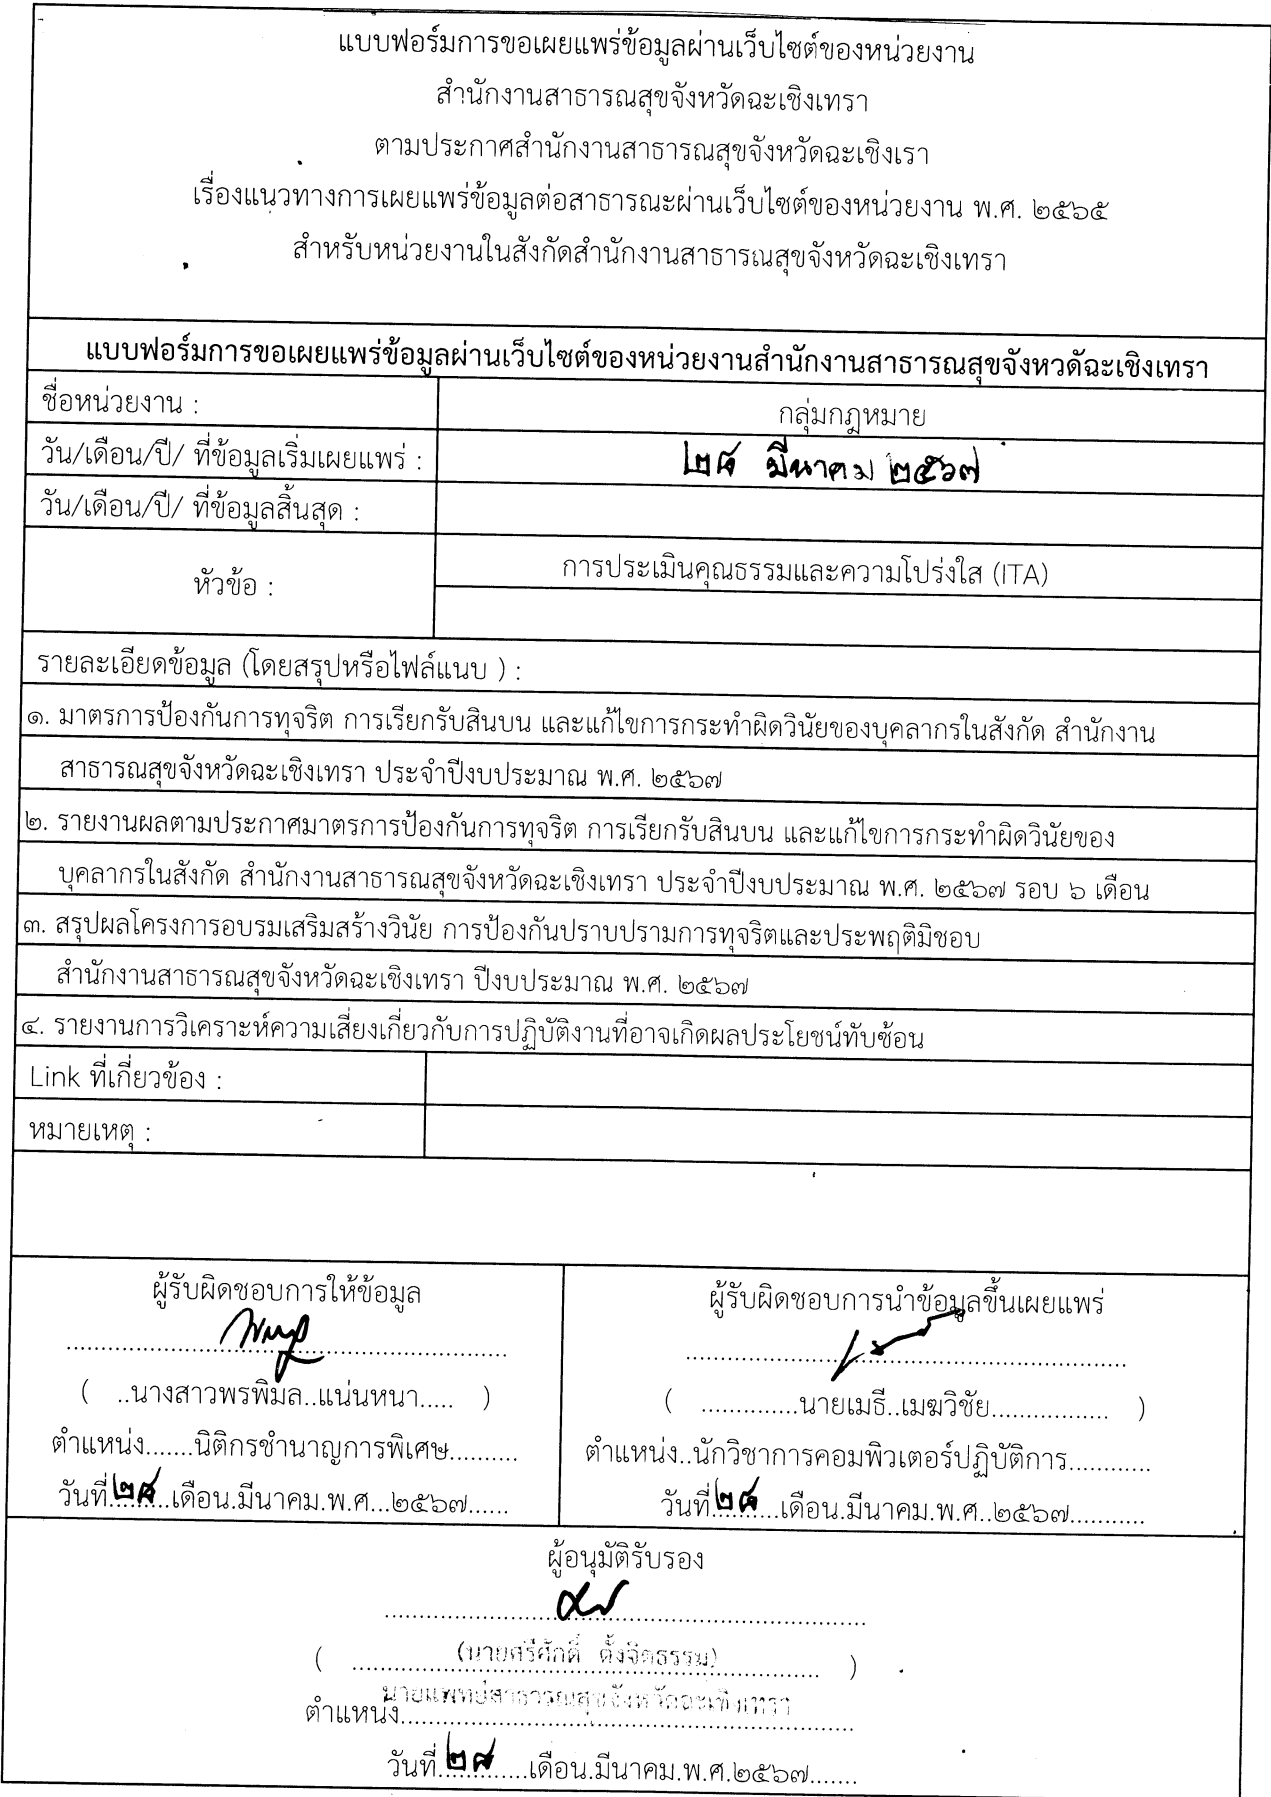 แบบฟอร์มการขอเผยแพร่ข้อมูลผ่านเว็บไซต์ของหน่วยงาน
สำนักงานสาธารณสุขจังหวัดฉะเชิงเทรา
ตามประกาศสำนักงานสาธารณสุขจังหวัดฉะเชิงเรา
เรื่องแนวทางการเผยแพร่ข้อมูลต่อสาธารณะผ่านเว็บไซต์ของหน่วยงาน พ.ศ. ๒๕๖๕
สำหรับหน่วยงานในสังกัดสำนักงานสาธารณสุขจังหวัดฉะเชิงเทรา
แบบฟอร์มการขอเผยแพร่ข้อมูลผ่านเว็บไซต์ของหน่วยงานสำนักงานสาธารณสุขจังหวดัฉะเชิงเทรา
ชื่อหน่วยงาน : กลุ่มกฎหมาย
วัน/เดือน/ปี/ ที่ข้อมูลเริ่มเผยแพร่ : ๒๘ มีนาคม ๒๕๖๗
วัน/เดือน/ปี/ ที่ข้อมูลสิ้นสุด :
หัวข้อ : การประเมินคุณธรรมและความโปร่งใส (ITA)
รายละเอียดข้อมูล (โดยสรุปหรือไฟล์แนบ ) :
๑. มาตรการป้องกันการทุจริต การเรียกรับสินบน และแก้ไขการกระทำผิดวินัยของบุคลากรในสังกัด สำนักงาน
สาธารณสุขจังหวัดฉะเชิงเทรา ประจำปีงบประมาณ พ.ศ. ๒๕๖๗
๒. รายงานผลตามประกาศมาตรการป้องกันการทุจริต การเรียกรับสินบน และแก้ไขการกระทำผิดวินัยของ
บุคลากรในสังกัด สำนักงานสาธารณสุขจังหวัดฉะเชิงเทรา ประจำปีงบประมาณ พ.ศ. ๒๕๖๗ รอบ ๖ เดือน
๓. สรุปผลโครงการอบรมเสริมสร้างวินัย การป้องกันปราบปรามการทุจริตและประพฤติมิชอบ
สำนักงานสาธารณสุขจังหวัดฉะเชิงเทรา ปีงบประมาณ พ.ศ. ๒๕๖๗
๔. รายงานการวิเคราะห์ความเสี่ยงเกี่ยวกับการปฏิบัติงานที่อาจเกิดผลประโยชน์ทับซ้อน
Link ที่เกี่ยวข้อง :
หมายเหตุ :
ผู้รับผิดชอบการให้ข้อมูล
( ..นางสาวพรพิมล..แน่นหนา..... )
ตำแหน่ง.......นิติกรชำนาญการพิเศษ..........
วันที่.๒๘..เดือน.มีนาคม.พ.ศ...๒๕๖๗......
ผู้รับผิดชอบการนำข้อมูลขึ้นเผยแพร่
( ..............นายเมธี..เมฆวิชัย................. )
ตำแหน่ง..นักวิชาการคอมพิวเตอร์ปฏิบัติการ............
วันที่.๒๘...เดือน.มีนาคม.พ.ศ..๒๕๖๗...........
ผู้อนุมัติรับรอง
( (นายศรีศักดิ์ ตั้งจิตธรรม) )
ตำแหน่ง นายแพทย์สาธารณสุขจังหวัดฉะเชิงเทรา
วันที่.๒๘.....เดือน.มีนาคม.พ.ศ.๒๕๖๗.......